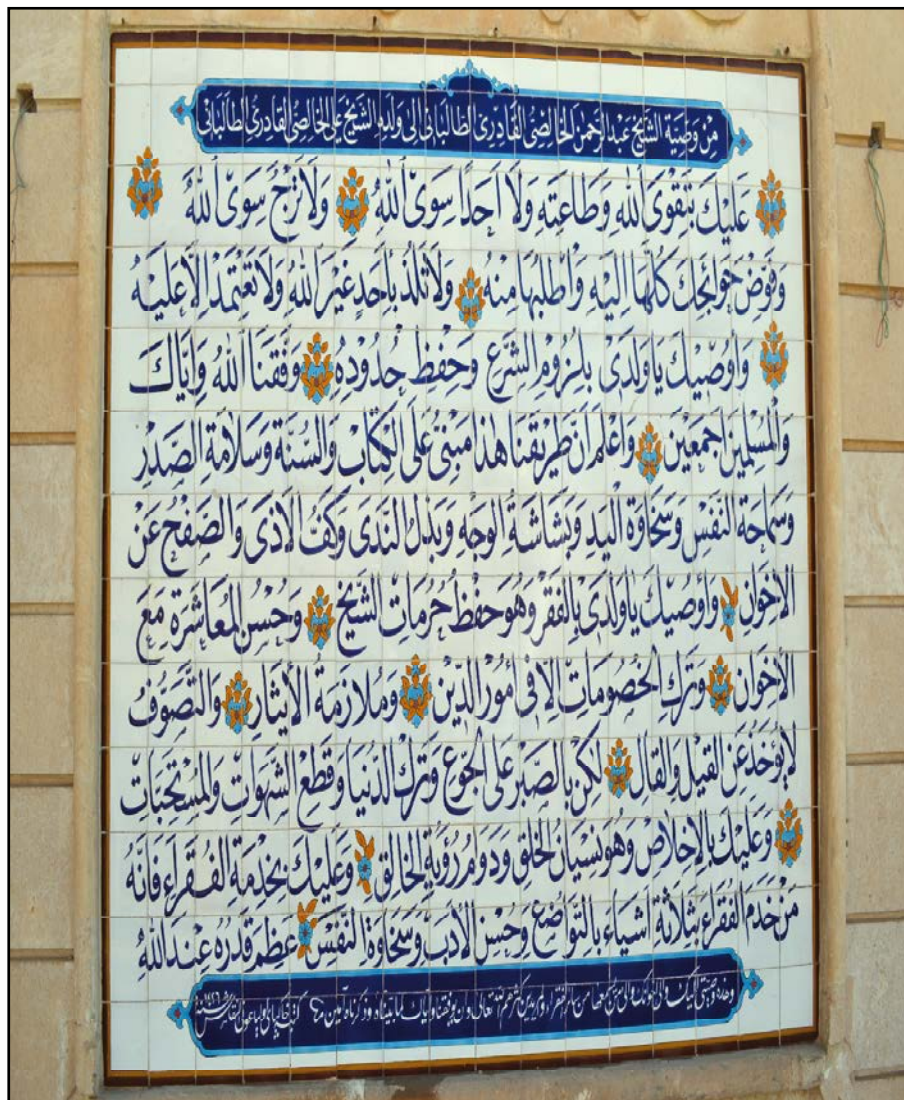 مِنْ وَصِيَّة الشَّيْخ عَبْد الرَّحْمٰن الخَالِصِى القَادِرِى الطَالَبَانِى اِلى وَلَدِهِ الشَّيْخ عَلِى الخَالِصِى القَادِرِى الطَالَبَانِى
عَلَيْكَ بِتَقْوَى اللهِ وَطَاعَتِهِ وَلَا اَحَدًا سِوَى اللهِ وَلَا تَرْجُ سِوَى اللهِ
وَفَوِّضْ حَوَائِجَكَ كُلَّهَا اِلَيْهِ وَاطْلُبْهَا مِنْهُ وَلَا تَلُذْ بِاَحَدٍ غَيْرَ اللهِ وَلَا تَعْتَمِدْ اِلَّا عَلَيْهِ
وَاُوصِيكَ يَا وَلَدِى بِلُزُومِ الشَّرْعِ وَحِفْظِ حُدُودِهِ وَفَّقَنَا اللهُ وَاِيَّاكَ
وَالمُسْلِمِينَ اَجْمَعِينَ وَاعْلَمْ اَنَّ طَرِيقَنَا هٰذَا مَبْنِىٌّ عَلَى الكِتَابِ وَالسُّنَّةِ وَسَلَامَةِ الصَّدْرِ
وَسَمَاحَةِ النَّفْسِ وَسَخَاوَةِ اليَدِ وَبَشَاشَةِ الوَجْهِ وَبَذْلِ النَّدَى وَكَفِّ الاَذَى وَالصَّفْحِ عَنْ
الاِخْوَانِ وَاُوصِيكَ يَا وَلَدِى بِالفَقْرِ وَهُوَ حِفْظُ حُرُمَاتِ الشَّيْخِ وَحُسْنُ المُعَاشَرَةِ مَعَ
الاِخْوَانِ وَتَرْكُ الخُصُومَاتِ اِلَّا فِى اُمُورِ الدِّينِ وَمُلَازَمَةُ الاِيثَارِ وَالتَّصَوُّفُ
لَا يُؤْخَذُ عَنِ القِيلِ وَالقَالِ لٰكِنْ بِالصَّبْرِ عَلَى الجُوعِ وَتَرْكِ الدُّنْيَا وَقَطْعِ الشَّهَوَاتِ وَالمُسْتَحَبَّاتِ
وَعَلَيْكَ بِالاِخْلَاصِ وَهُوَ نِسْيَانُ الخَلْقِ وَدَوَامُ رُؤْيَةِ الخَالِقِ وَعَلَيْكَ بِخِدْمَةِ الفُقَرَاءِ فَاِنَّهُ
مَنْ خَدَمَ الفُقَرَاءَ بِثَلَاثَةِ اَشْيَاءَ بِالتَّوَاضُعِ وَحُسْنِ الاَدَبِ وَسَخَاوَةِ النَّفْسِ عَظُمَ قَدْرُهُ عِنْدَ اللهِ
وهذه وصيتى اليك والى من